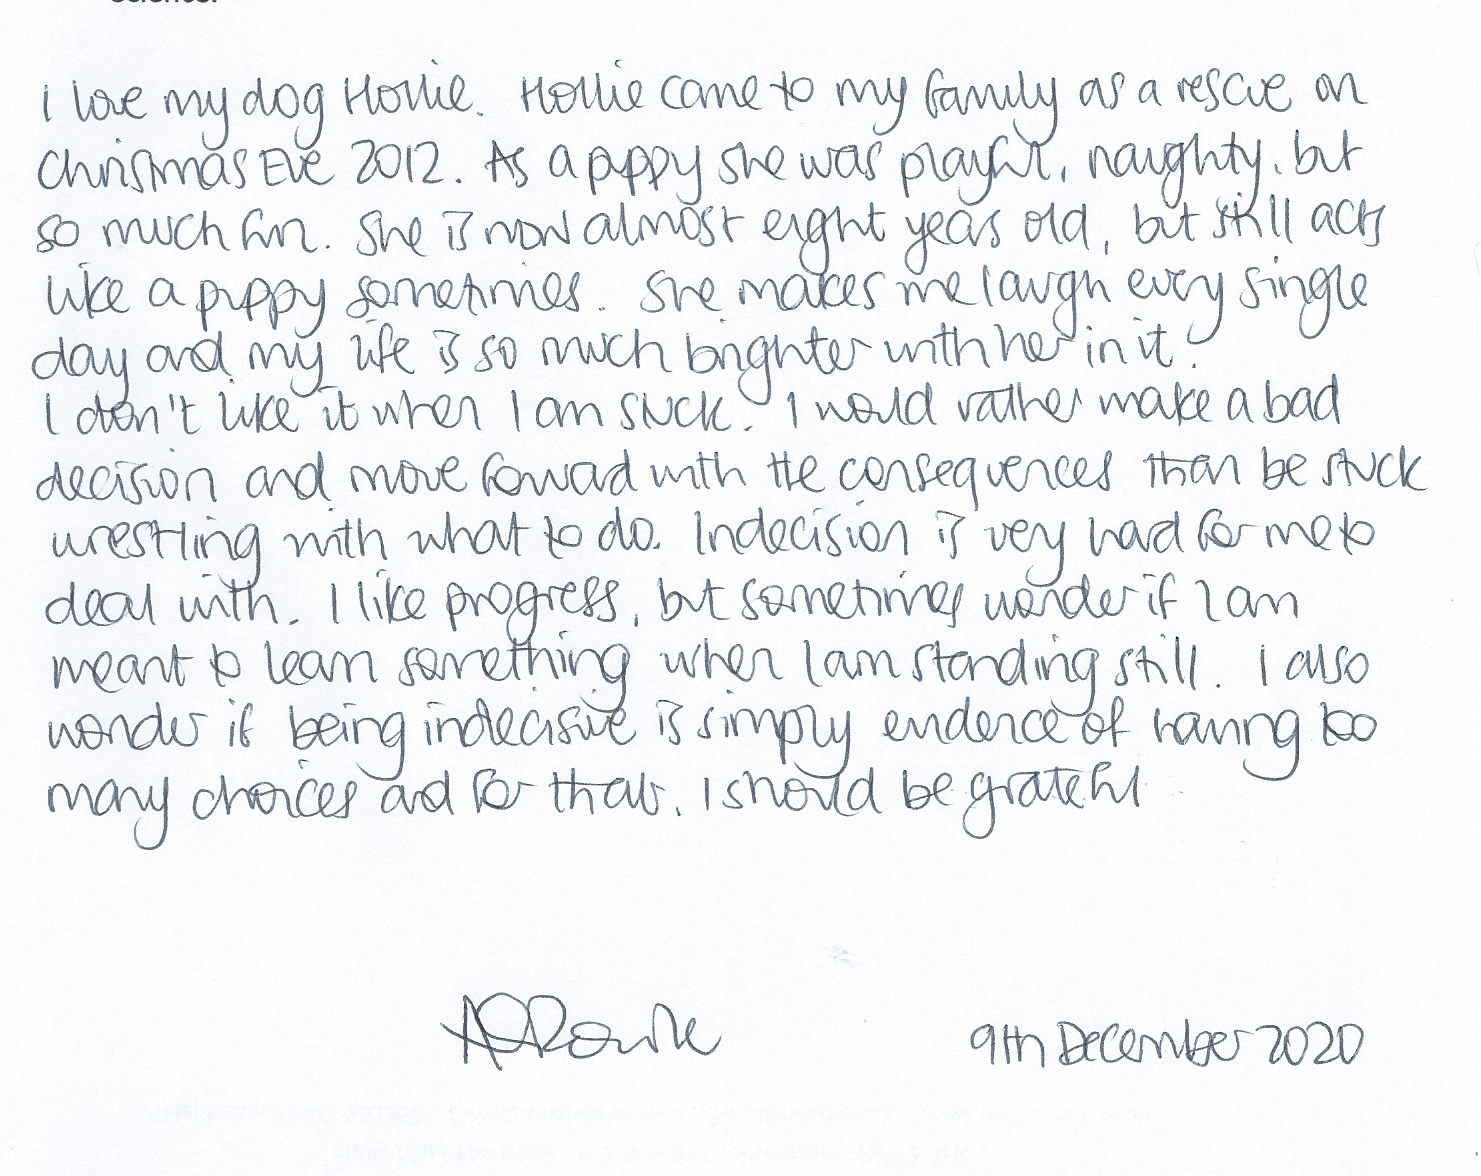 science.
I love my dog Hollie. Hollie came to my family as a rescue on
Christmas Eve 2012. As a puppy she was playful, naughty, but
so much fun. She is now almost eight years old, but still acts
like a puppy sometimes. She makes me laugh every single
day and my life is so much brighter with her in it.
I don't like it when I am stuck. I would rather make a bad
decision and move forward with the consequences than be stuck
wrestling with what to do. Indecision is very hard for me to
deal with. I like progress, but sometimes wonder if I am
meant to learn something when I am standing still. I also
wonder if being indecisive is simply evidence of having too
many choices and for that, I should be grateful
9th December 2020